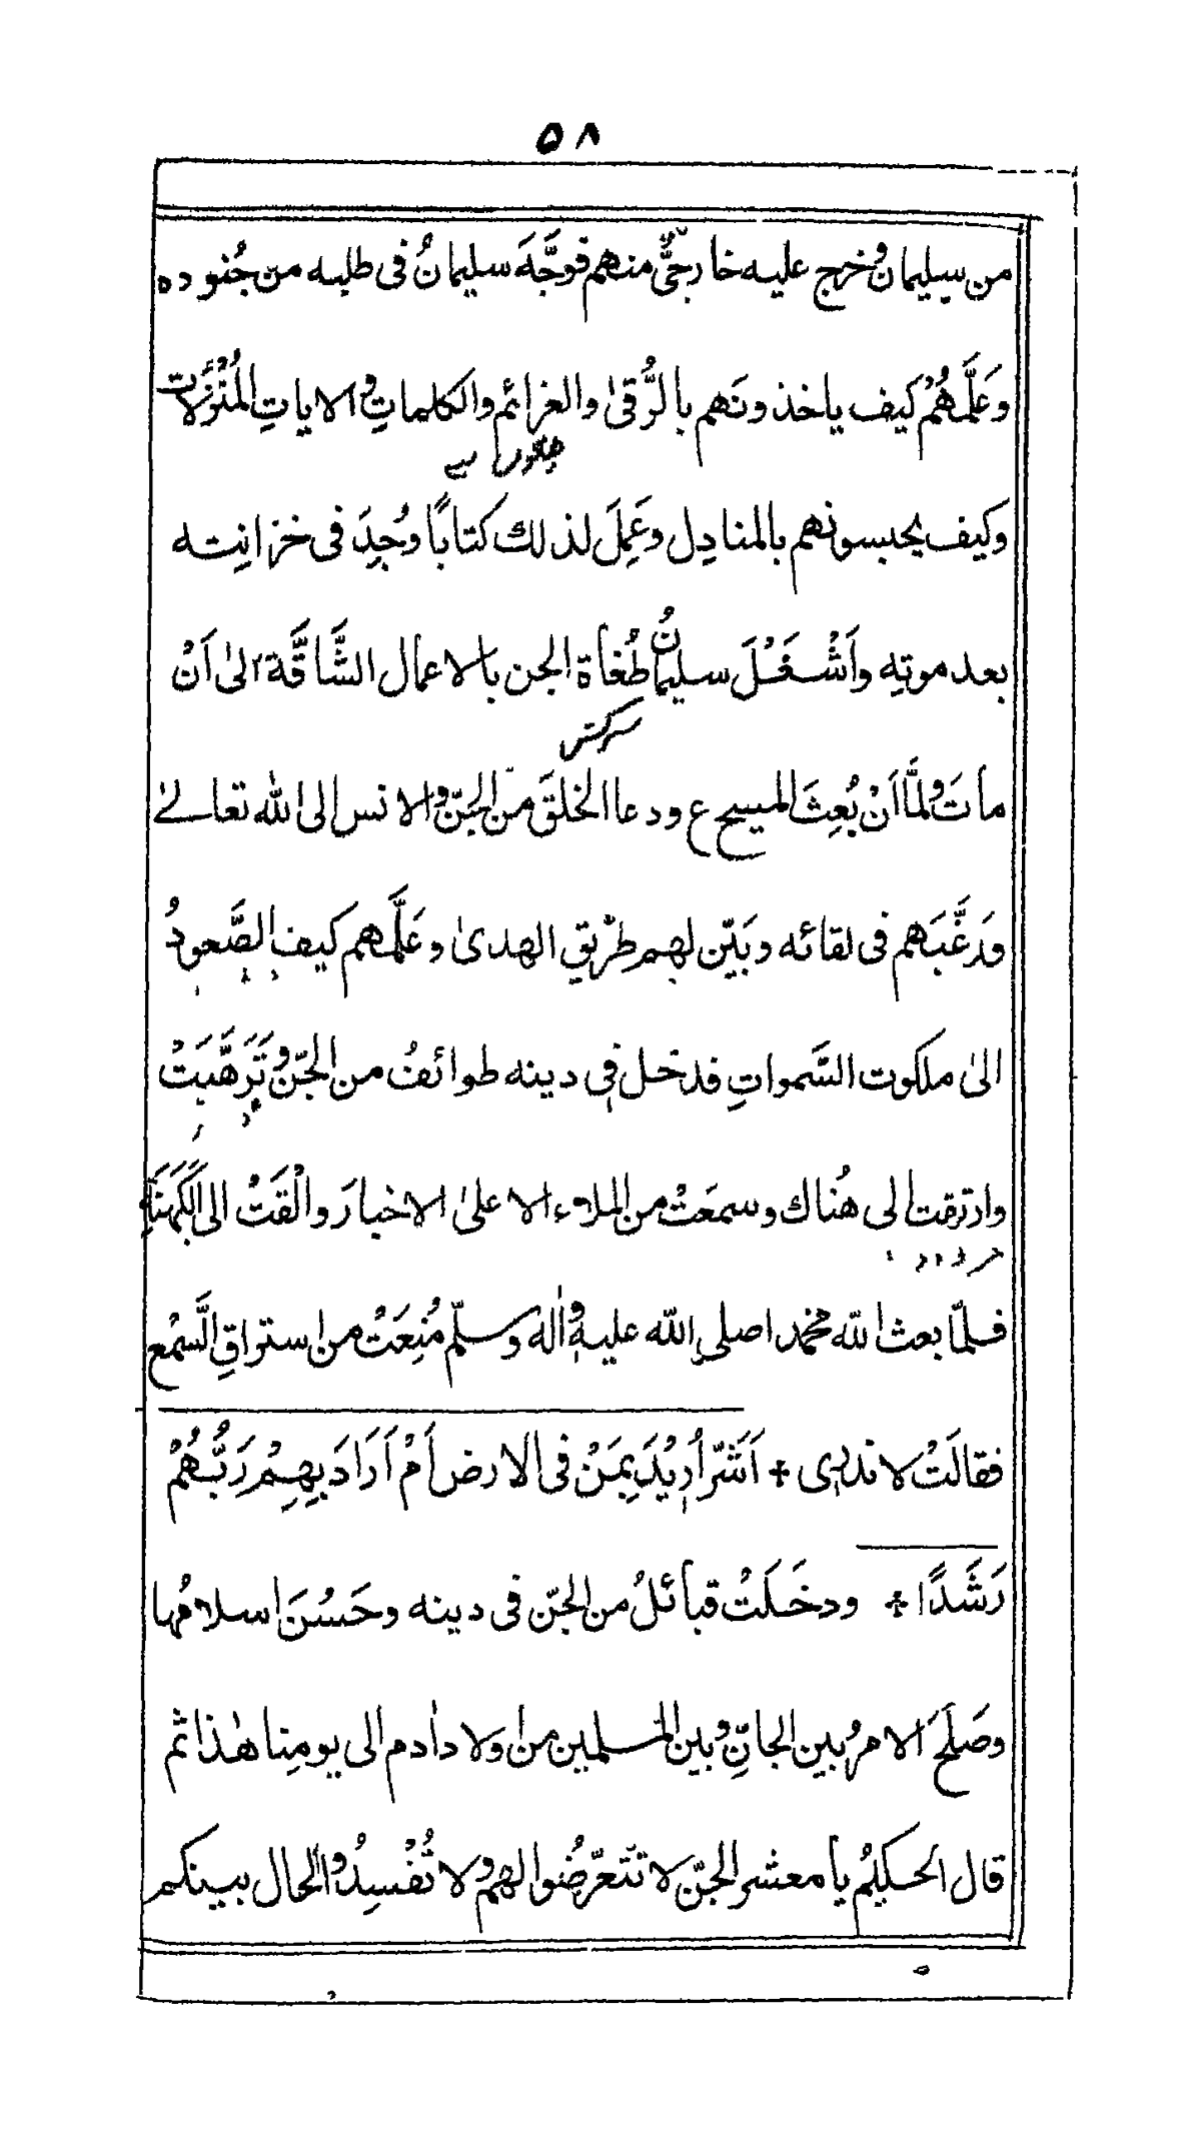 ٥٨
من سليمان وخرج عليه خارجيٌّ منهم فوَجَّهَ سليمانُ فى طلبه من جُنوده
وَعَلَّمَهُمْ كيف ياخذونَهم بالرُّقىٰ والعزائم والكلماتِ والاياتِ المُنْزَلات
وكيف يحبسونهم بالمنادِل وعَمِلَ لذلك كتابًا وُجِدَ فى خزانتِه
بعد موتِه واَشْغَلَ سليمانُ طُغاةَ الجن بالاعمال الشَّاقَّة الىٰ اَنْ
سرکش
ماتَ ولمَّا اَنْ بُعِثَ المسيح ع ودعا الخلقَ من الجنّ والانس الى الله تعالىٰ
ورَغَّبَهم فى لقائه وبَيّن لهم طريق الهدىٰ وعَلَّمهم كيف الصَّعودُ
الىٰ ملكوت السَّمواتِ فدخل فى دينه طوائفُ من الجنّ وتَرَهَّبَتْ
وارتقت الى هُناك وسمعَتْ من الملاء الاعلىٰ الاخبارَ والْقَتْ الى الكَهَنَةِ
فلمّا بعث الله محمدا صلى الله عليه واٰله وسلّم مُنِعَتْ من استراقِ السَّمْع
فقالَتْ لا ندرى + اَشَرٌّ اُرِيْدَ بِمَنْ فى الارض اَمْ اَرَادَ بِهِمْ رَبُّهُمْ
رَشَدًا + ودخَلَتْ قبائلُ من الجنّ فى دينه وحَسُنَ اسلامُها
وصَلَحَ الامرُ بين الجانِّ وبين المسلمين من اولاد اٰدم الى يومِنا هٰذا ثم
قال الحكيمُ يا معشر الجنّ لا تتعرّضوا لهم ولا تُفْسِدُوا الحال بينكم